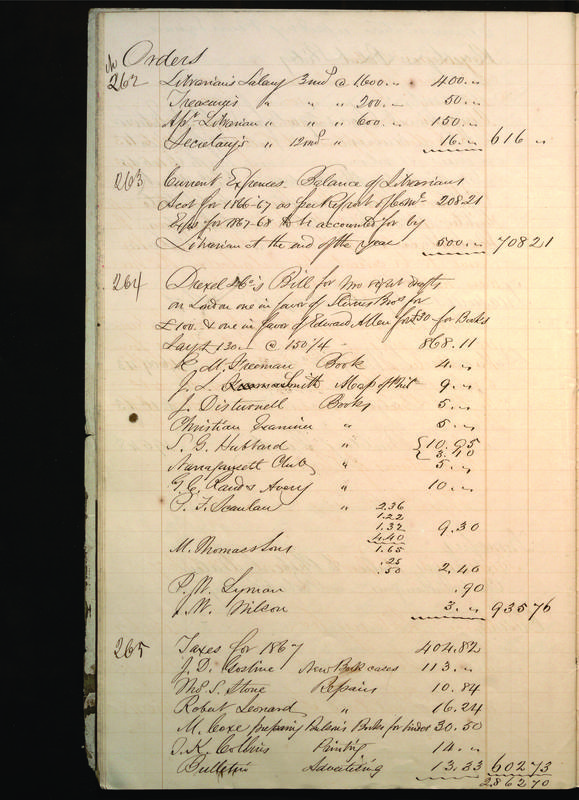 No Orders
262 Librarians Salary 3 mos @ 1600.„ 400.„
Treasurers „ „ „ 200.— 50.„
Asst Librarian „ „ „ 600.„ 150.„
Secretary's „ 12 mos „ 16.„ 616 „
263 Current Expences. Balance of Librarians
Acct for 1866-67 as per Report of Comr. 208.21
for 1867-68 to be accounted for by
Librarian at the end of the year 500.„ 708 21
264 Drexel & Co's Bill for two drafts
on London one in favor of Stevens Bros for
£100. & one in favor of Edward Allen for £30 for Books
Say £130 @ 150¼ 868.11
K. M. Freeman Book 4.„
J. L. Smith Map of Phil 9.„
J. Disturnell Books 5.„
Christian Examiner „ 5.„
S. G. Hubbard „ { 10.95
{ 3.10
Narragansett Club „ 5.„
G. C. Rand & Avery „ 10.„
P. F. Scanlan „ 2.36
1.22
1.32 9.30
4.40
M. Thomas & Sons 1.65
.25
.50 2.40
P. W. Lyman .90
J. W. Wilson 3.„ 935 76
265 Taxes for 1867 404.82
J. D. Gostine New Book cases 113.„
Thos. S. Stone Repairs 10.84
Robert Leonard „ 16.24
M. Coxe preparing Books for 30.50
T. K. Collins Printing 14.„
Bulletin Advertising 13.33 602 73
2862 70